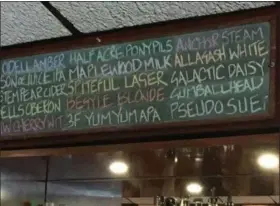 ODELL AMBER HALF ACRE PONY PLS ANCHR STEAM
JUICE IPA MAPLEWOOD MILK ALLAGASH WHITE
TEMPEAR CIDER SPITEFUL LASER GALACTIC DAISY
ELLS OBERON BEETLE BLONDE GUMBALLHEAD
CHERRY WT 3F YUMYUM APA PSEUDO SUE